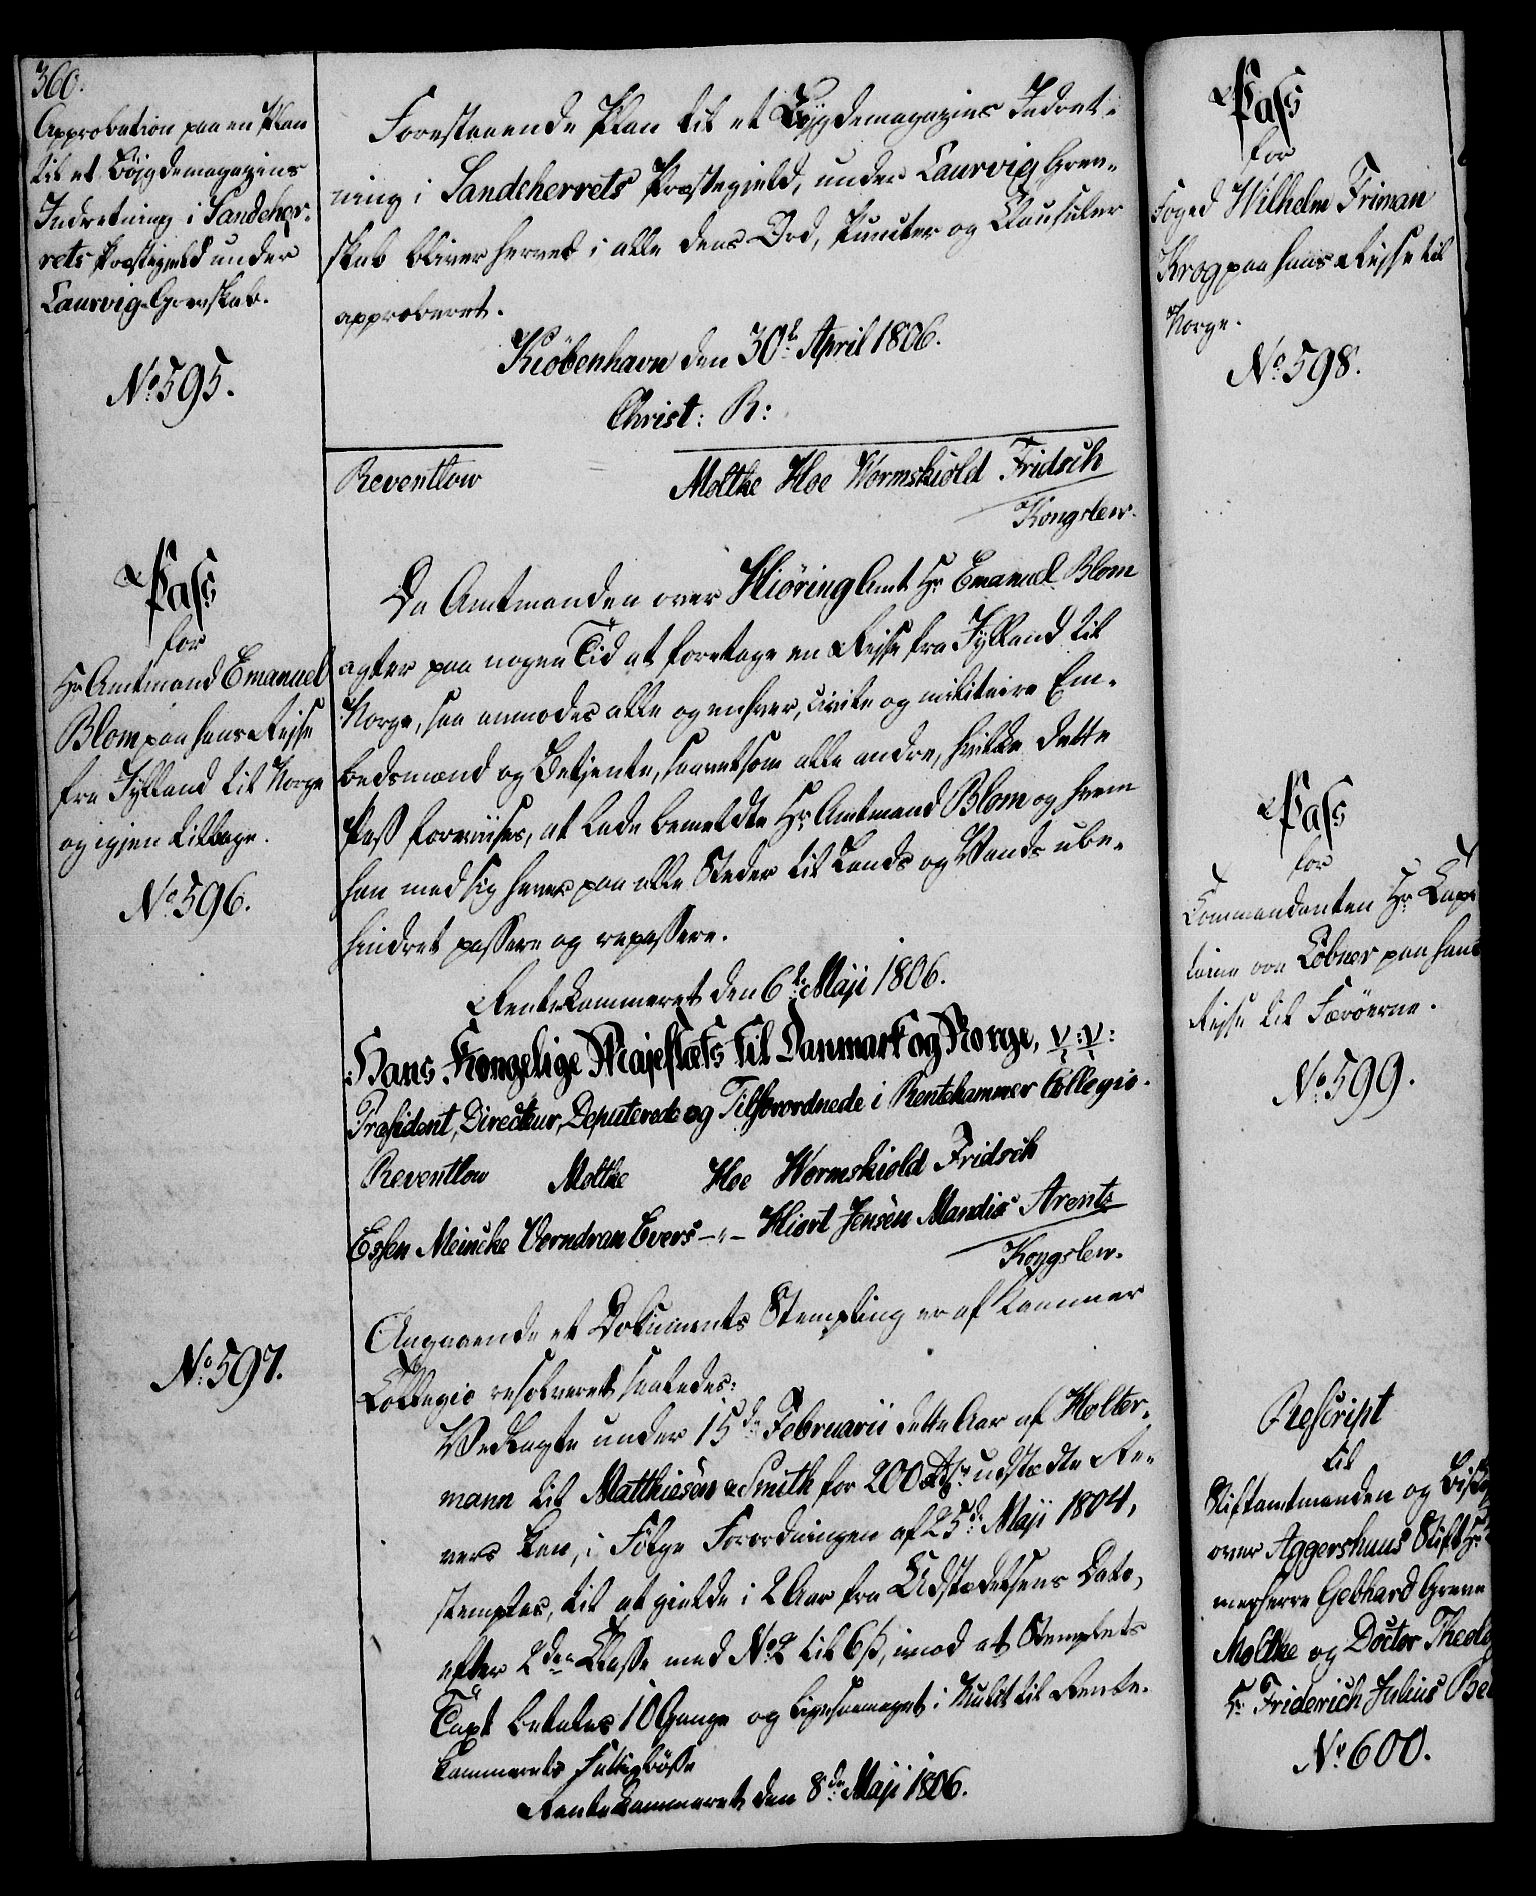 360.
Approbation paa en Plan
til et Bøjgdemagazins
Indretning i Sandeher-
rets Præstegield under
Laurvig Grevskab.
No. 595.
Forestaaende Plan til et Bøjgdemagazins Indret-
ning i Sandeherrets Præstegield, under Laurvig Grev-
skab bliver herved i alle dens Ord, Puncter og Clausuler
approberet.
Kiöbenhavn den 30te April 1806.
Christ: R:
Reventlow
Moltke Hoe Wormskiold Fridsch
Kongslew.
Pass
for
Hr. Amtmand Emanuel
Blom paa hans Rejse
fra Jylland til Norge
og igjen tilbage.
No. 596.
Da Amtmanden over Hiöring Amt Hr. Emanuel Blom
agter paa nogen Tid at foretage en Rejse fra Jylland til
Norge, saa anmodes alle og enhver, civile og militaire Em-
bedsmænd og Betjente, saavelsom alle andre, hvilke dette
Pass foreviises, at lade bemeldte Hr. Amtmand Blom og hvem
han med sig haver paa alle Steder til Lands og Vands ube-
hindret passere og repassere.
Rentekammeret den 6te Maji 1806.
Hans Kongelige Majestæts til Danmark og Norge, &:&:
Præsident, Directeur, Deputerede og Tilforordnede i Rentekammer Collegio.
Reventlow Moltke Hoe Wormskiold Fridsch
Essen Meincke Verndran Evers -"- Hiort Jensen Mandix Arentz
Kongslew.
No. 597.
Angaaende et Dokuments Stempling er af Kammer
Collegio resolveret saaledes:
Vedlagte under 15de Februarii dette Aar af Holter-
mann til Matthiesen & Smith for 200 Rdr. udstædte Re-
vers kan, i Følge Forordningen af 25de Maji 1804,
stemples, til at gielde i 2 Aar fra Udstædelsens Dato,
efter 2den Classe med No. 2 til 6 ß, imod at Stemplets
Taxt betales 10 Gange og ligesaameget i Mulct til Rente-
kammerets Fattigbøsse
Rentekammeret den 8de Maji 1806.
Pass
for
Foged Wilhelm Friman
Krog paa hans Rejse til
Norge.
No. 598.
Pass
for
Commandanten Hr. Capi
taine von Löbner paa hans
Rejse til Færöerne.
No. 599.
Rescript
til
Stiftamtmanden og Bisk
over Aggershuus Stift Hr.
merherre Gebhard Greve
Moltke og Doctor Theolo
Hr. Friderich Julius Be
No. 600.